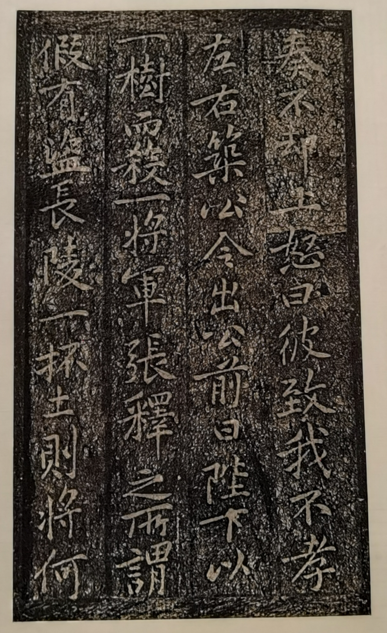 奏不却上怒曰彼致我不孝
左右築公令出公前曰陛下以
一樹而殺一将軍張釋之所謂
假有盜長陵一杯土則将何